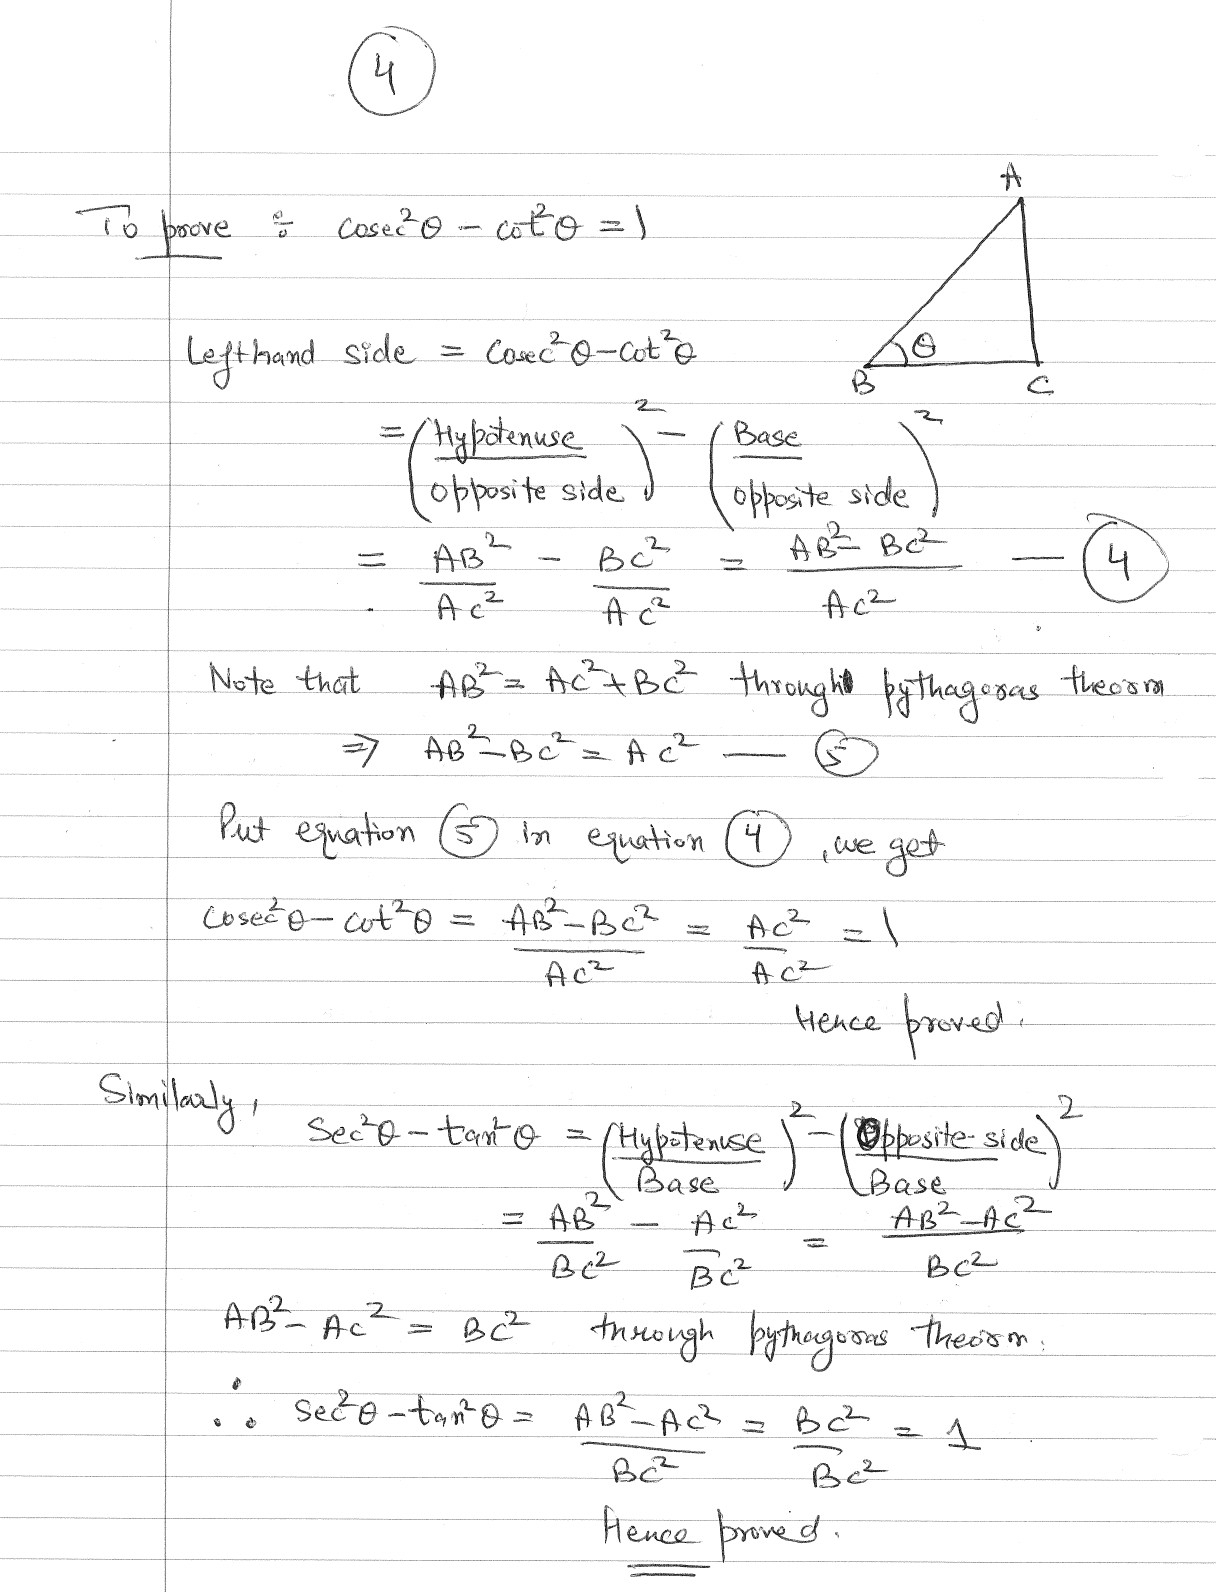 4
A
To prove ÷ cosec²θ – cot²θ = 1
Lefthand side = cosec²θ – cot²θ
θ
B C
= (Hypotenuse / opposite side)² – (Base / opposite side)²
= AB²/AC² – BC²/AC² = AB² – BC²/AC² — 4
Note that AB² = AC² + BC² through pythagoras theorm
⇒ AB² – BC² = AC² — 5
Put equation 5 in equation 4, we get
cosec²θ – cot²θ = AB² – BC²/AC² = AC²/AC² = 1
Hence proved.
Similarly,
Sec²θ – tan²θ = (Hypotenuse / Base)² – (Opposite side / Base)²
= AB²/BC² – AC²/BC² = AB² – AC²/BC²
AB² – AC² = BC² through pythagoras theorm.
∴ sec²θ – tan²θ = AB² – AC²/BC² = BC²/BC² = 1
Hence proved.